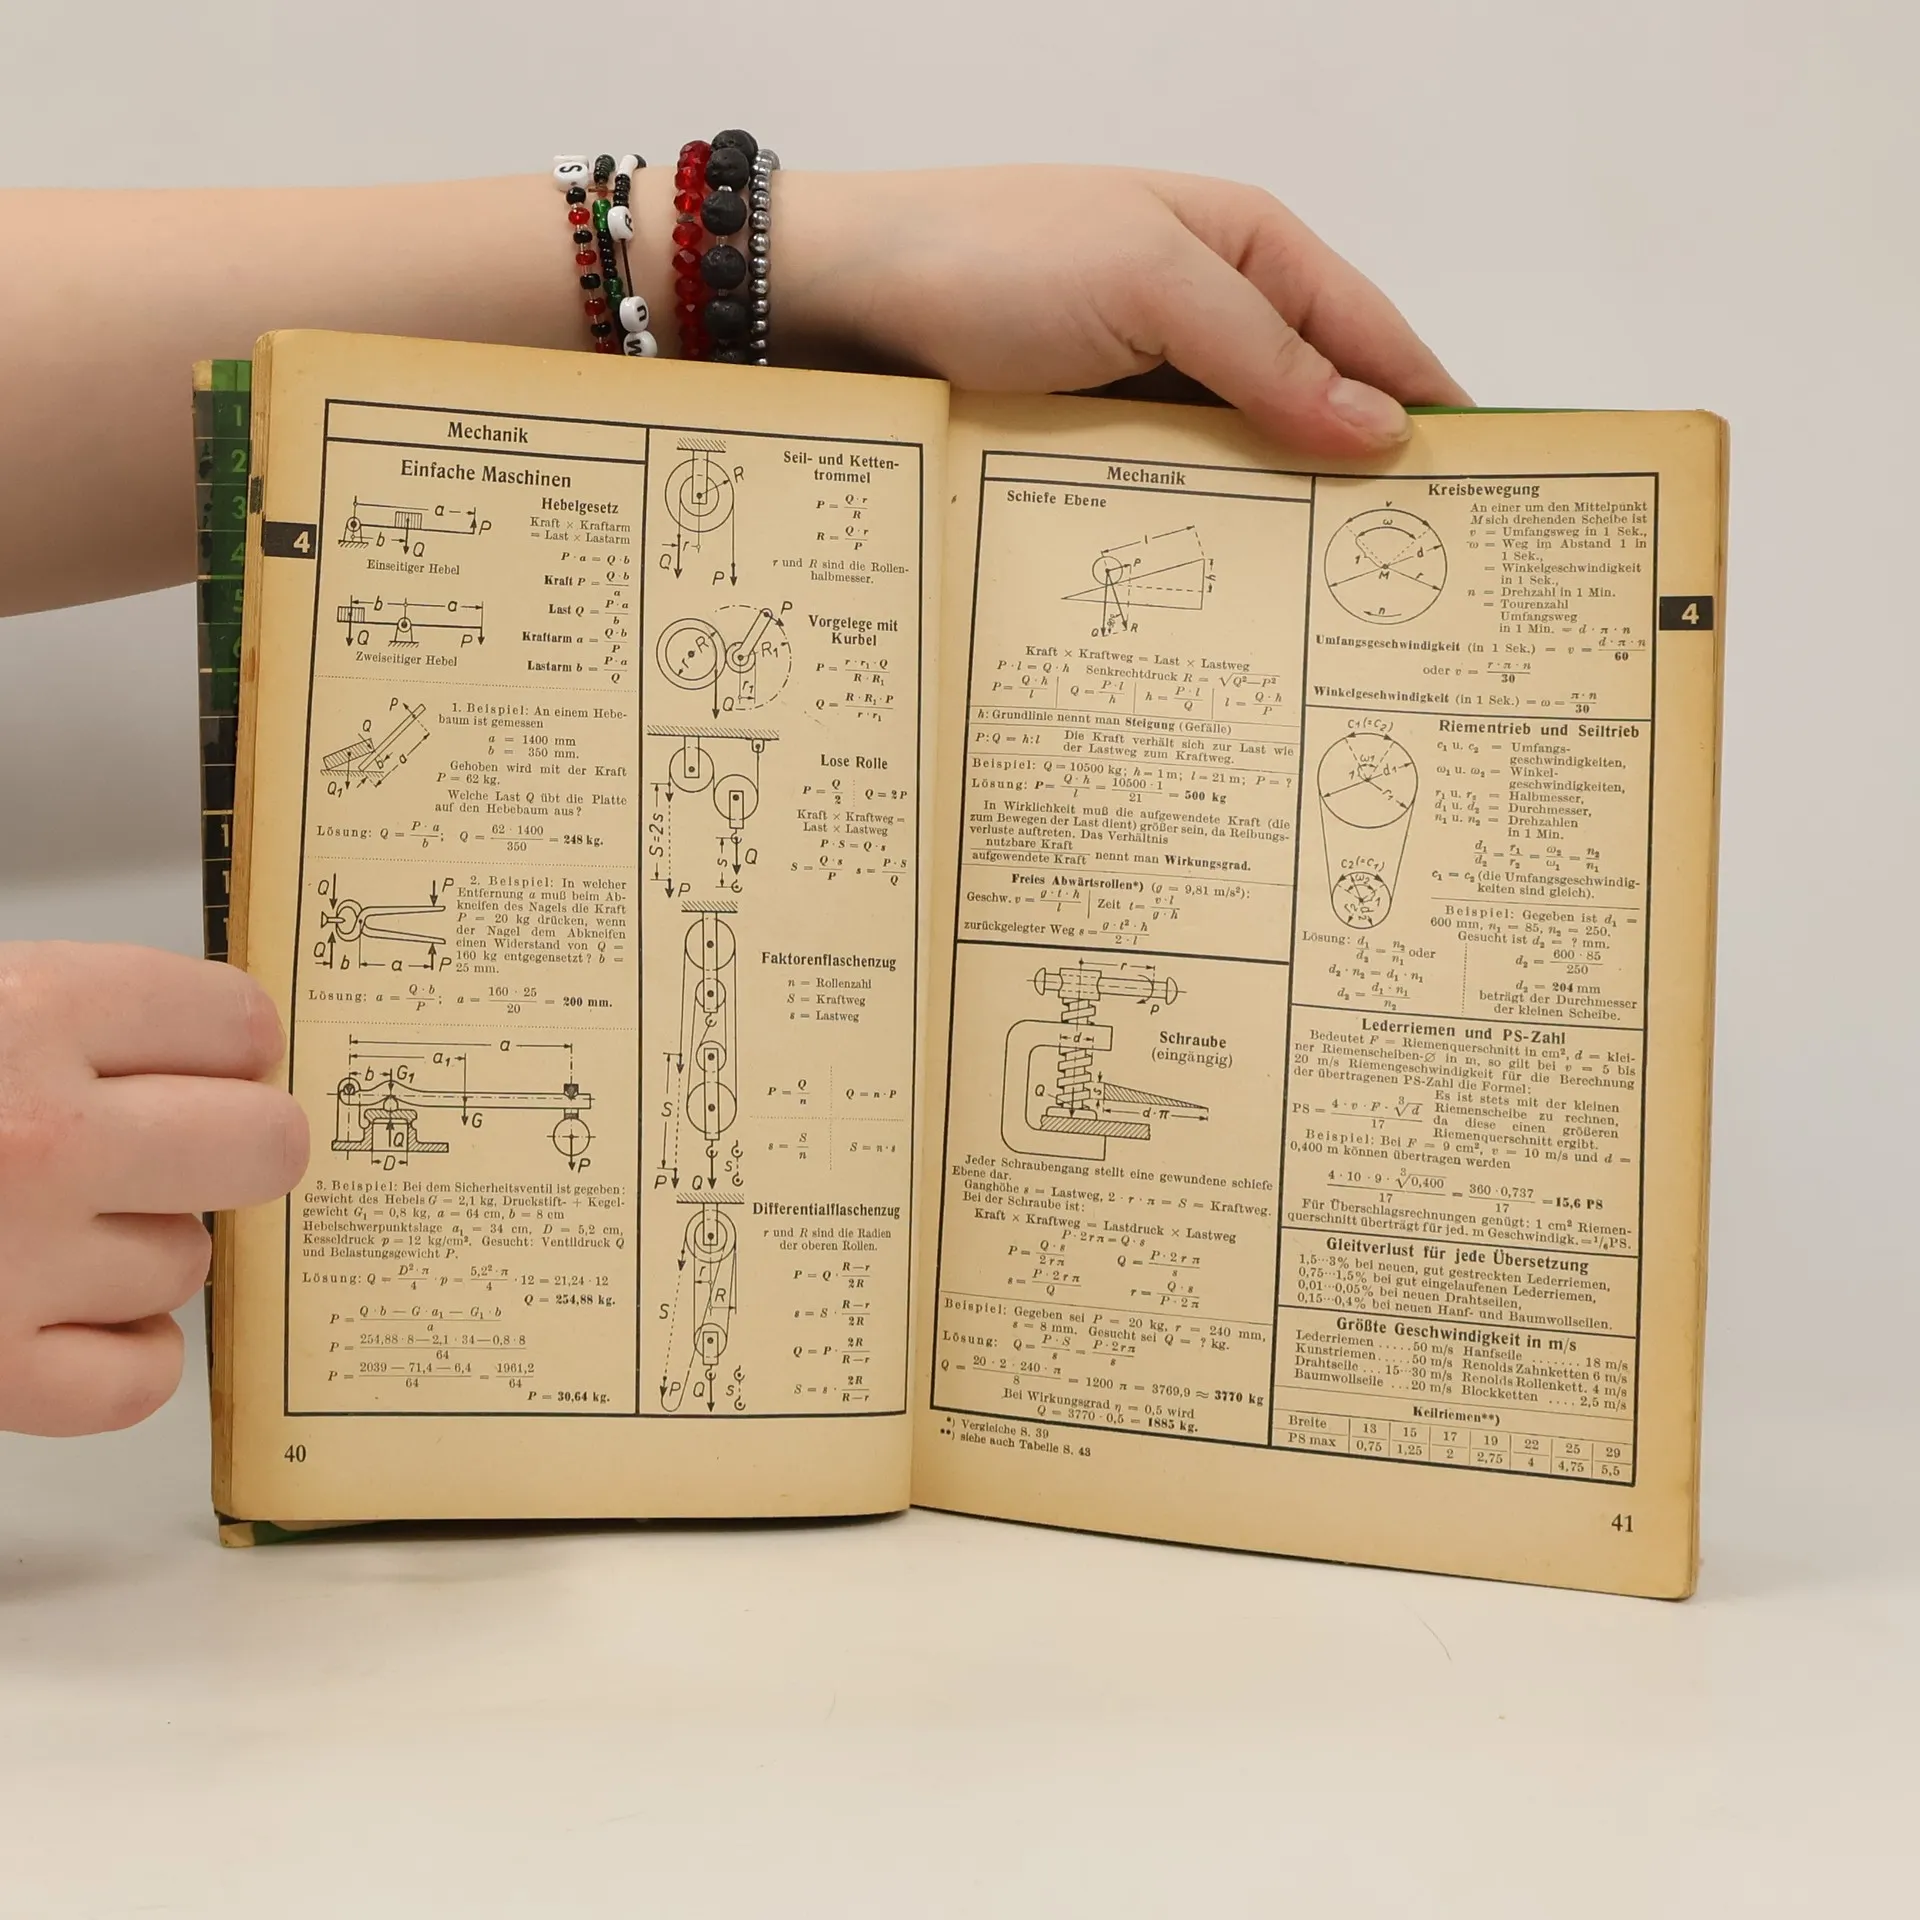 S
U
W
1
2
3
4
5
6
4
Mechanik
Einfache Maschinen
a
P
b
Q
Einseitiger Hebel
b
a
Q
P
Zweiseitiger Hebel
Hebelgesetz
Kraft × Kraftarm
= Last × Lastarm
P · a = Q · b
Kraft P = Q · b / a
Last Q = P · a / b
Kraftarm a = Q · b / P
Lastarm b = P · a / Q
P
Q
a
b
Q₁
1. Beispiel: An einem Hebe-
baum ist gemessen
a = 1400 mm
b = 350 mm.
Gehoben wird mit der Kraft
P = 62 kg.
Welche Last Q übt die Platte
auf den Hebebaum aus?
Lösung: Q = P · a / b; Q = 62 · 1400 / 350 = 248 kg.
Q
P
Q
b
a
P
2. Beispiel: In welcher
Entfernung a muß beim Ab-
kneifen des Nagels die Kraft
P = 20 kg drücken, wenn
der Nagel dem Abkneifen
einen Widerstand von Q =
160 kg entgegensetzt? b =
25 mm.
Lösung: a = Q · b / P; a = 160 · 25 / 20 = 200 mm.
a
a₁
b
G₁
G
Q
D
P
3. Beispiel: Bei dem Sicherheitsventil ist gegeben:
Gewicht des Hebels G = 2,1 kg, Druckstift- + Kegel-
gewicht G₁ = 0,8 kg, a = 64 cm, b = 8 cm
Hebelschwerpunktslage a₁ = 34 cm, D = 5,2 cm,
Kesseldruck p = 12 kg/cm². Gesucht: Ventildruck Q
und Belastungsgewicht P.
Lösung: Q = D² · π / 4 · p = 5,2² · π / 4 · 12 = 21,24 · 12
Q = 254,88 kg.
P = Q · b — G · a₁ — G₁ · b / a
P = 254,88 · 8 — 2,1 · 34 — 0,8 · 8 / 64
P = 2039 — 71,4 — 6,4 / 64 = 1961,2 / 64
P = 30,64 kg.
R
r
Q
P
Seil- und Ketten-
trommel
P = Q · r / R
R = Q · r / P
r und R sind die Rollen-
halbmesser.
P
R
r
R₁
r₁
Q
Vorgelege mit
Kurbel
P = r · r₁ · Q / R · R₁
Q = R · R₁ · P / r · r₁
S=2s
P
s
Q
Lose Rolle
P = Q / 2 Q = 2P
Kraft × Kraftweg =
Last × Lastweg
P · S = Q · s
S = Q · s / P s = P · S / Q
S
P
Q
s
Faktorenflaschenzug
n = Rollenzahl
S = Kraftweg
s = Lastweg
P = Q / n Q = n · P
s = S / n S = n · s
r
S
R
P
Q
s
Differentialflaschenzug
r und R sind die Radien
der oberen Rollen.
P = Q · R—r / 2R
s = S · R—r / 2R
Q = P · 2R / R—r
S = s · 2R / R—r
40
Mechanik
Schiefe Ebene
l
P
h
Q
R
Kraft × Kraftweg = Last × Lastweg
P · l = Q · h Senkrechtdruck R = √Q²—P²
P = Q · h / l Q = P · l / h h = P · l / Q l = Q · h / P
h: Grundlinie nennt man Steigung (Gefälle)
P : Q = h : l Die Kraft verhält sich zur Last wie
der Lastweg zum Kraftweg.
Beispiel: Q = 10500 kg; h = 1 m; l = 21 m; P = ?
Lösung: P = Q · h / l = 10500 · 1 / 21 = 500 kg
In Wirklichkeit muß die aufgewendete Kraft (die
zum Bewegen der Last dient) größer sein, da Reibungs-
verluste auftreten. Das Verhältnis
nutzbare Kraft / aufgewendete Kraft nennt man Wirkungsgrad.
Freies Abwärtsrollen*) (g = 9,81 m/s²):
Geschw. v = g · t · h / l Zeit t = v · l / g · h
zurückgelegter Weg s = g · t² · h / 2 · l
r
P
d
Q
s
d·π
Schraube
(eingängig)
Jeder Schraubengang stellt eine gewundene schiefe
Ebene dar.
Ganghöhe s = Lastweg, 2 · r · π = S = Kraftweg.
Bei der Schraube ist:
Kraft × Kraftweg = Lastdruck × Lastweg
P · 2 r π = Q · s
P = Q · s / 2 r π Q = P · 2 r π / s
s = P · 2 r π / Q r = Q · s / P · 2 π
Beispiel: Gegeben sei P = 20 kg, r = 240 mm,
s = 8 mm. Gesucht sei Q = ? kg.
Lösung: Q = P · S / s = P · 2 r π / s
Q = 20 · 2 · 240 · π / 8 = 1200 π = 3769,9 ≈ 3770 kg
Bei Wirkungsgrad η = 0,5 wird
Q = 3770 · 0,5 = 1885 kg.
*) Vergleiche S. 39
**) siehe auch Tabelle S. 43
4
Kreisbewegung
v
ω
1
d
M
r
n
An einer um den Mittelpunkt
M sich drehenden Scheibe ist
v = Umfangsweg in 1 Sek.,
ω = Weg im Abstand 1 in
1 Sek.,
= Winkelgeschwindigkeit
in 1 Sek.,
n = Drehzahl in 1 Min.
= Tourenzahl
Umfangsweg
in 1 Min. = d · π · n
Umfangsgeschwindigkeit (in 1 Sek.) = v = d · π · n / 60
oder v = r · π · n / 30
Winkelgeschwindigkeit (in 1 Sek.) = ω = π · n / 30
C₁(=C₂)
ω₁
1
d₁
r₁
C₂(=C₁)
ω₂
1
r₂
d₂
Riementrieb und Seiltrieb
c₁ u. c₂ = Umfangs-
geschwindigkeiten,
ω₁ u. ω₂ = Winkel-
geschwindigkeiten,
r₁ u. r₂ = Halbmesser,
d₁ u. d₂ = Durchmesser,
n₁ u. n₂ = Drehzahlen
in 1 Min.
d₁ / d₂ = r₁ / r₂ = ω₂ / ω₁ = n₂ / n₁
c₁ = c₂ (die Umfangsgeschwindig-
keiten sind gleich).
Beispiel: Gegeben ist d₁ =
600 mm, n₁ = 85, n₂ = 250.
Gesucht ist d₂ = ? mm.
Lösung: d₁ / d₂ = n₂ / n₁ oder
d₂ · n₂ = d₁ · n₁
d₂ = d₁ · n₁ / n₂
d₂ = 600 · 85 / 250
d₂ = 204 mm
beträgt der Durchmesser
der kleinen Scheibe.
Lederriemen und PS-Zahl
Bedeutet F = Riemenquerschnitt in cm², d = klei-
ner Riemenscheiben-∅ in m, so gilt bei v = 5 bis
20 m/s Riemengeschwindigkeit für die Berechnung
der übertragenen PS-Zahl die Formel:
PS = 4 · v · F · ³√d / 17
Es ist stets mit der kleinen
Riemenscheibe zu rechnen,
da diese einen größeren
Riemenquerschnitt ergibt.
Beispiel: Bei F = 9 cm², v = 10 m/s und d =
0,400 m können übertragen werden
4 · 10 · 9 · ³√0,400 / 17 = 360 · 0,737 / 17 = 15,6 PS
Für Überschlagsrechnungen genügt: 1 cm² Riemen-
querschnitt überträgt für jed. m Geschwindigk. = ¹/₆ PS.
Gleitverlust für jede Übersetzung
1,5···3% bei neuen, gut gestreckten Lederriemen,
0,75···1,5% bei gut eingelaufenen Lederriemen,
0,01···0,05% bei neuen Drahtseilen,
0,15···0,4% bei neuen Hanf- und Baumwollseilen.
Größte Geschwindigkeit in m/s
Lederriemen .....50 m/s Hanfseile ....... 18 m/s
Kunstriemen.....50 m/s Renolds Zahnketten 6 m/s
Drahtseile ... 15···30 m/s Renolds Rollenkett. 4 m/s
Baumwollseile ...20 m/s Blockketten .... 2,5 m/s
Keilriemen**)
Breite 13 15 17 19 22 25 29
PS max 0,75 1,25 2 2,75 4 4,75 5,5
41